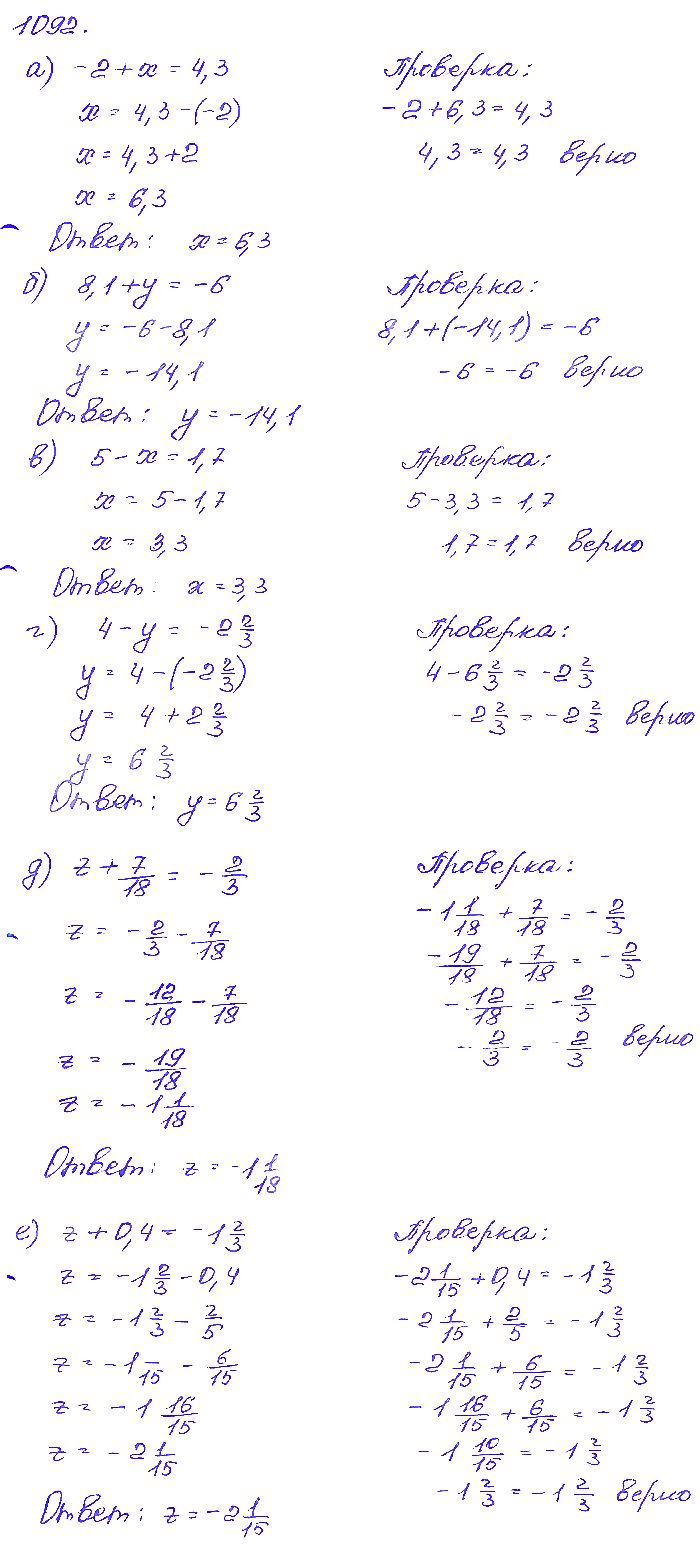 1092.
а) -2 + x = 4,3
x = 4,3 - (-2)
x = 4,3 + 2
x = 6,3
Ответ: x = 6,3
Проверка:
-2 + 6,3 = 4,3
4,3 = 4,3 верно
б) 8,1 + y = -6
y = -6 - 8,1
y = -14,1
Ответ: y = -14,1
Проверка:
8,1 + (-14,1) = -6
-6 = -6 верно
в) 5 - x = 1,7
x = 5 - 1,7
x = 3,3
Ответ: x = 3,3
Проверка:
5 - 3,3 = 1,7
1,7 = 1,7 верно
г) 4 - y = -2 2/3
y = 4 - (-2 2/3)
y = 4 + 2 2/3
y = 6 2/3
Ответ: y = 6 2/3
Проверка:
4 - 6 2/3 = -2 2/3
-2 2/3 = -2 2/3 верно
д) z + 7/18 = -2/3
z = -2/3 - 7/18
z = -12/18 - 7/18
z = -19/18
z = -1 1/18
Ответ: z = -1 1/18
Проверка:
-1 1/18 + 7/18 = -2/3
-19/18 + 7/18 = -2/3
-12/18 = -2/3
-2/3 = -2/3 верно
е) z + 0,4 = -1 2/3
z = -1 2/3 - 0,4
z = -1 2/3 - 2/5
z = -1 /15 - 6/15
z = -1 16/15
z = -2 1/15
Ответ: z = -2 1/15
Проверка:
-2 1/15 + 0,4 = -1 2/3
-2 1/15 + 2/5 = -1 2/3
-2 1/15 + 6/15 = -1 2/3
-1 16/15 + 6/15 = -1 2/3
-1 10/15 = -1 2/3
-1 2/3 = -1 2/3 верно